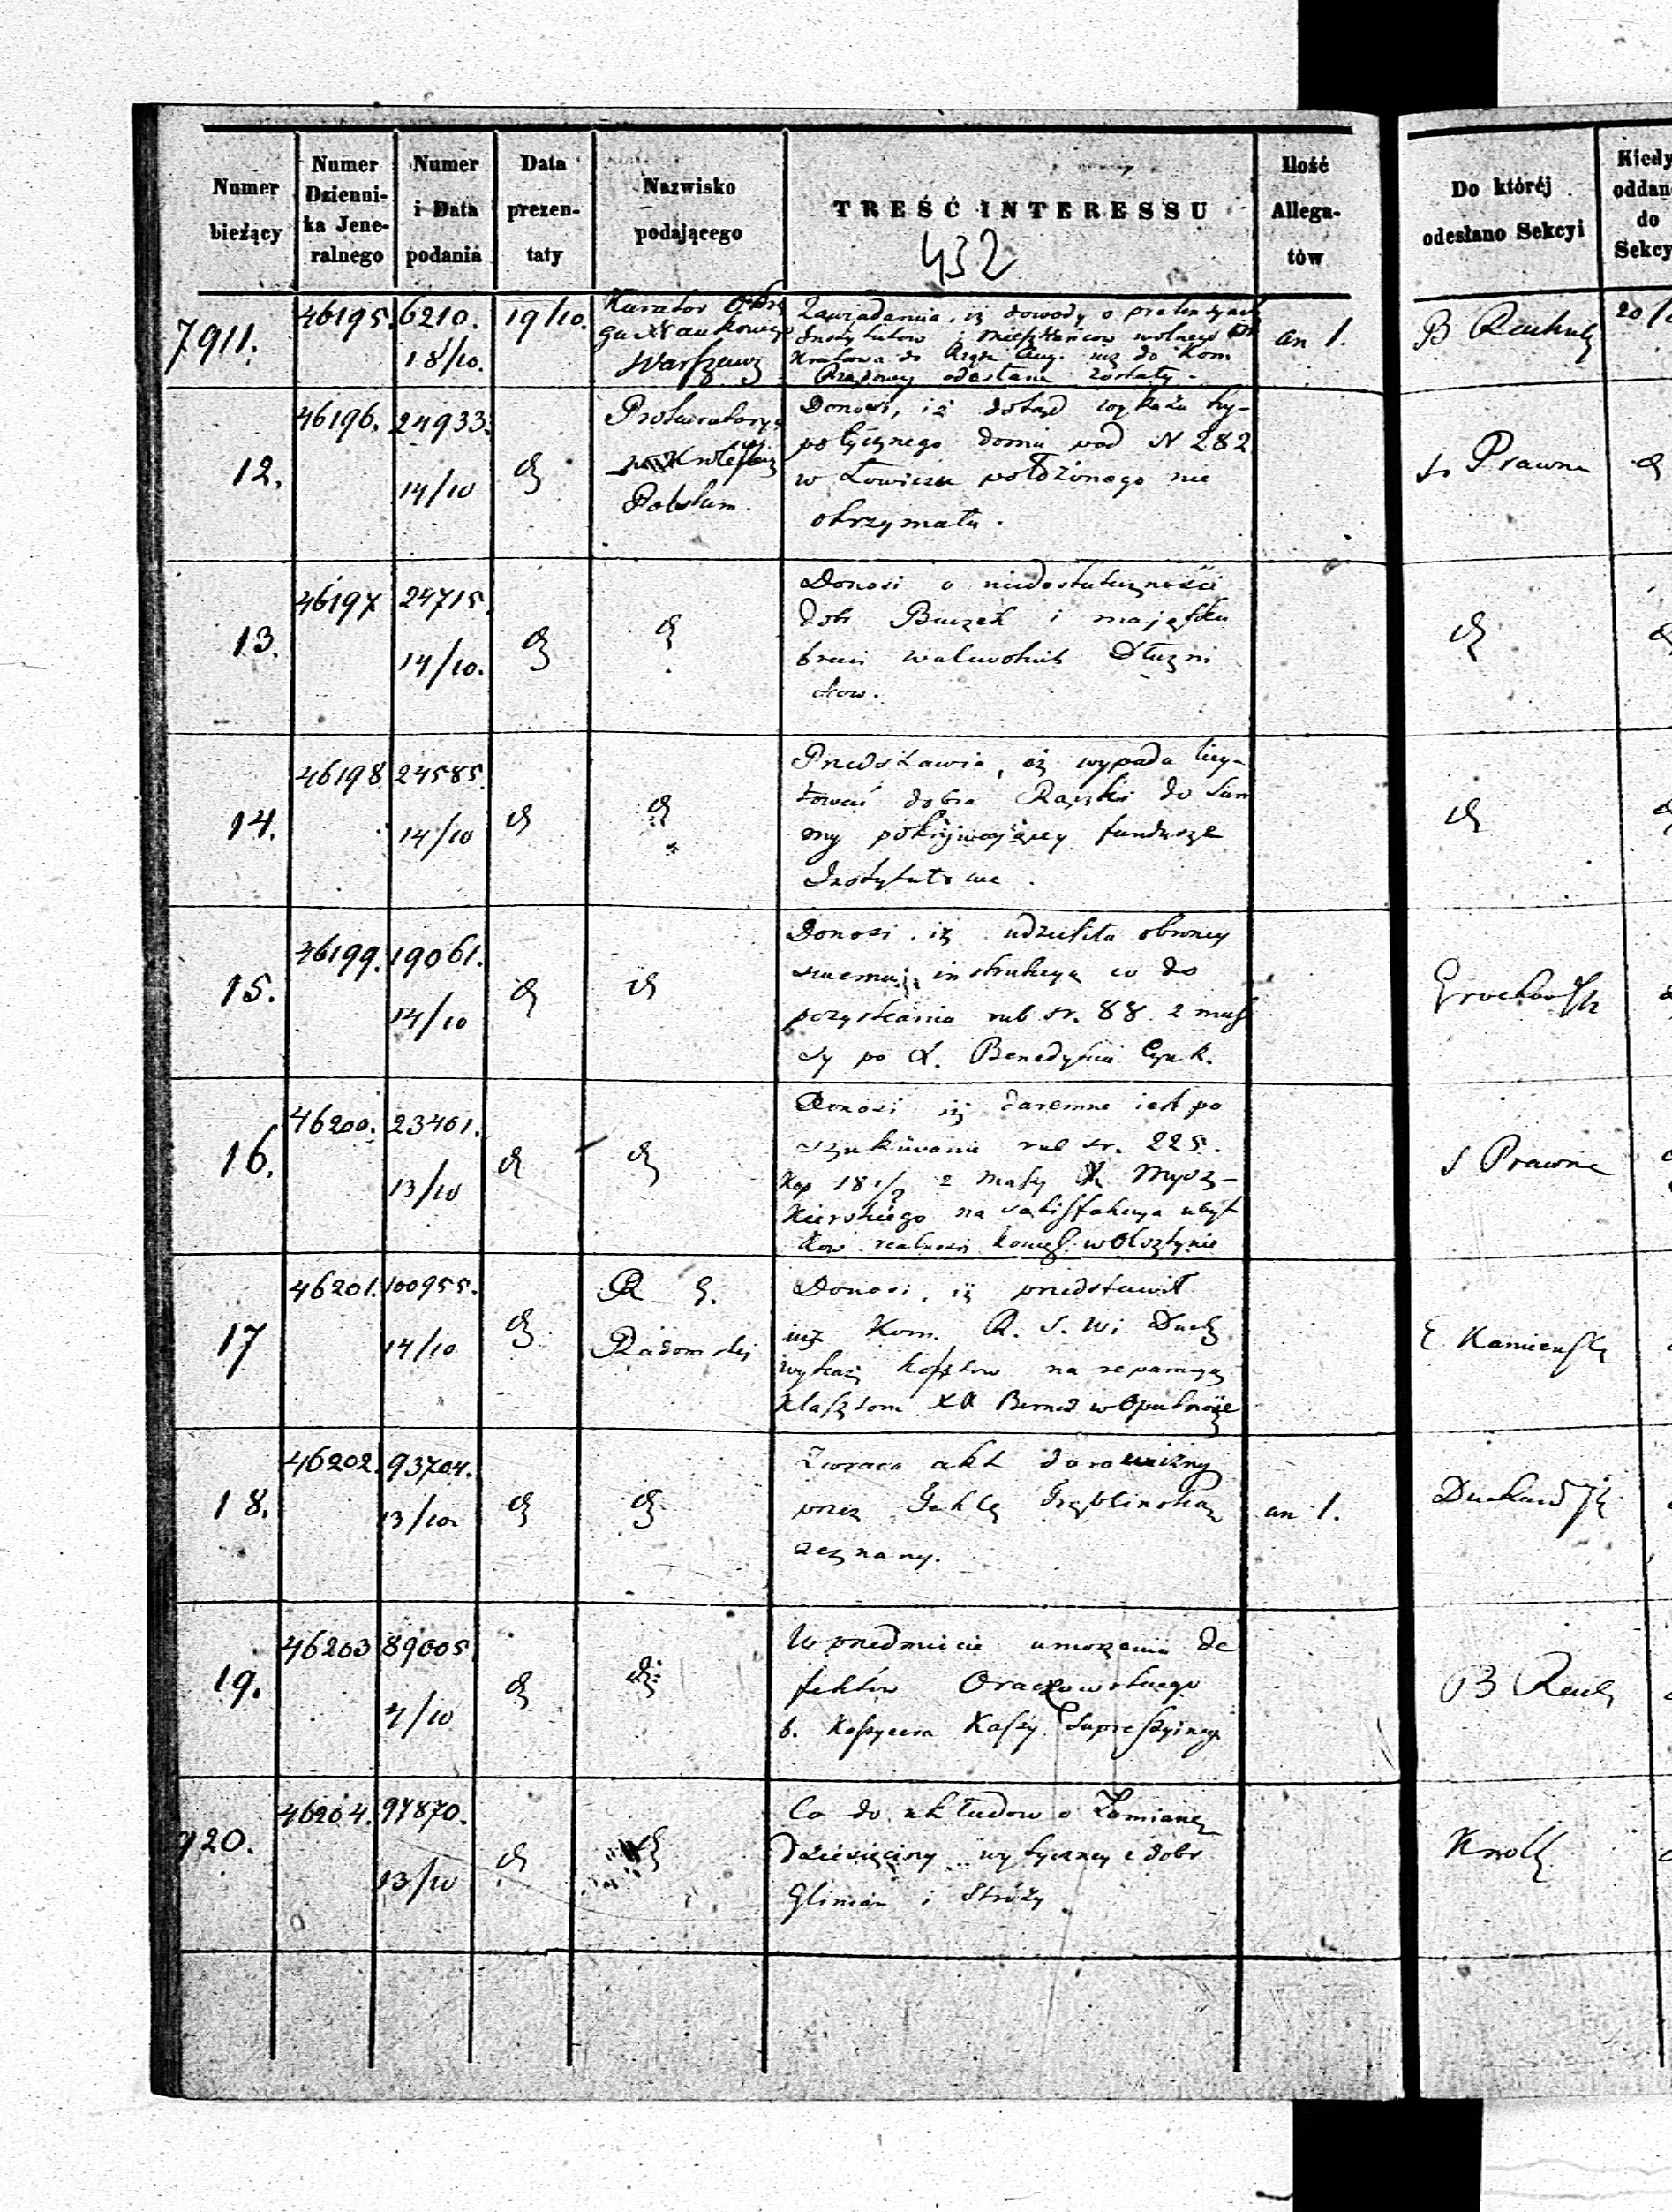 Numer bieżący
Numer Dzienni-ka Jene-ralnego
Numer i Data podania
Data prezen-taty
Nazwisko podającego
TREŚĆ INTERESSU
432
Ilość Allega-tów
Do któréj odesłano Sekcyi
Kiedy oddan do Sekcy
7911.
46195.
6210.
18/10.
19/10.
Kurator Okrę
gu Naukowego
Warszaws
Zawiadamia, iż dowody o pretensyach
Instytutów i mieszkańców wolnego
Krakowa do Rządu Aus. już do Kom
Rządowej odesłane zostały.
an 1.
B
20/
12.
46196.
24933.
14/10
Prokuratorya
Polskim.
Donosi, iż dotąd wykazu hy-
potecznego domu pod N 282
w Łowiczu położonego nie
otrzymała.
Prawna
13.
46197
24715.
14/10.
Donosi o niedostateczności
dóbr Buczek i majątku
braci Dłużni
ków.
14.
46198
24585.
14/10
Przedstawia, iż wypada licy-
tować dobra do Sum
my pokrywającej fundusze
Instytutowe.
15.
46199.
19061.
14/10
Donosi, iż udzieliła obrońcy
swemu instrukcyą co do
pozyskania rub sr. 88. z mas
sy po X. Benedykcie
16.
46200.
23461.
13/10
Donosi iż daremne jest po
szukiwanie rub sr. 225.
Kop 18 1/2 z masy Mysz-
kierskiego na satisfakcyą ubyt
ków realności w Olsztynie
S Prawna
17
46201.
100955.
14/10
R G.
Radomski
Donosi, iż przedstawił
już Kom. R. S. W i Duch
wykaz kosztów na reparacyą
Klasztoru XX Bernard w Opatowie
Kamieńsk
18.
46202.
93704.
13/10
Zwraca akt darowizny
przez
zeznany.
an 1.
19.
46203
89005
7/10
W przedmiocie umorzenia de
fektów Oraczowskiego
b. Kasyera Kassy Supressyjnej
B
920.
46204.
97870.
13/10
Co do układow o Zamianę
dziesięciny wytycznej z dobr
Glinian i Stróży.
Knoll